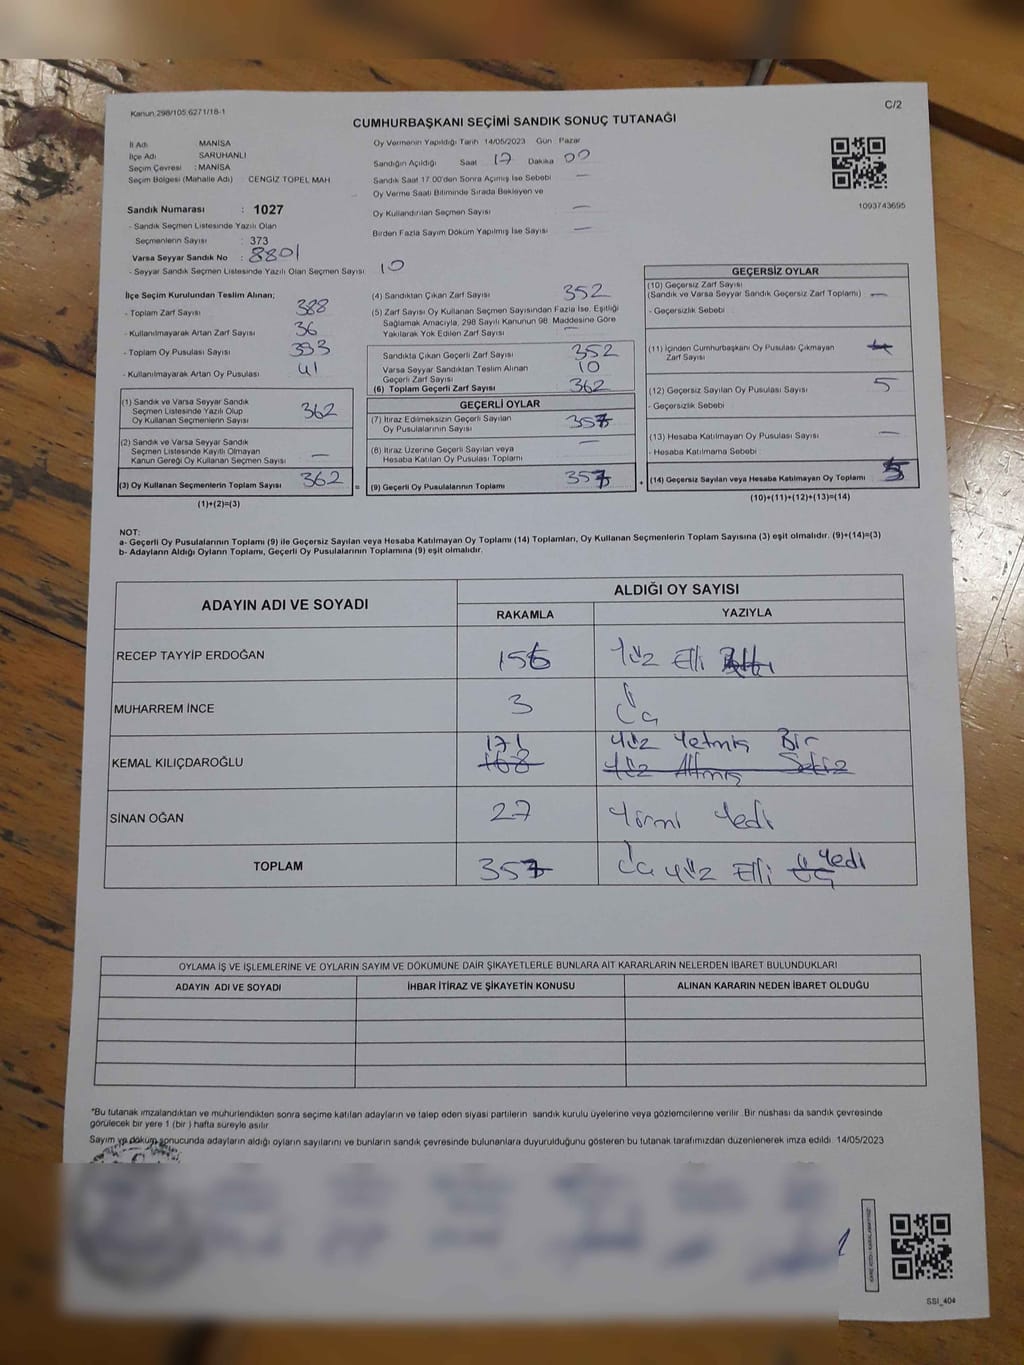 Kanun 298/105,6271/18-1
C/2
CUMHURBAŞKANI SEÇİMİ SANDIK SONUÇ TUTANAĞI
İl Adı MANİSA
İlçe Adı SARUHANLI
Seçim Çevresi : MANİSA
Seçim Bölgesi (Mahalle Adı) CENGİZ TOPEL MAH
Sandık Numarası : 1027
- Sandık Seçmen Listesinde Yazılı Olan
Seçmenlerin Sayısı : 373
Varsa Seyyar Sandık No : 8801
- Seyyar Sandık Seçmen Listesinde Yazılı Olan Seçmen Sayısı 10
Oy Vermenin Yapıldığı Tarih 14/05/2023 Gün Pazar
Sandığın Açıldığı Saat 17 Dakika 00
Sandık Saat 17.00'den Sonra Açılmış İse Sebebi —
Oy Verme Saati Bitiminde Sırada Bekleyen ve
Oy Kullandırılan Seçmen Sayısı —
Birden Fazla Sayım Döküm Yapılmış İse Sayısı —
1093743695
İlçe Seçim Kurulundan Teslim Alınan;
- Toplam Zarf Sayısı 388
- Kullanılmayarak Artan Zarf Sayısı 36
- Toplam Oy Pusulası Sayısı 393
- Kullanılmayarak Artan Oy Pusulası 41
(1) Sandık ve Varsa Seyyar Sandık
Seçmen Listesinde Yazılı Olup
Oy Kullanan Seçmenlerin Sayısı 362
(2) Sandık ve Varsa Seyyar Sandık
Seçmen Listesinde Kayıtlı Olmayan
Kanun Gereği Oy Kullanan Seçmen Sayısı —
(3) Oy Kullanan Seçmenlerin Toplam Sayısı 362 =
(1)+(2)=(3)
(4) Sandıktan Çıkan Zarf Sayısı 352
(5) Zarf Sayısı Oy Kullanan Seçmen Sayısından Fazla İse, Eşitliği
Sağlamak Amacıyla, 298 Sayılı Kanunun 98. Maddesine Göre
Yakılarak Yok Edilen Zarf Sayısı —
Sandıkta Çıkan Geçerli Zarf Sayısı 352
Varsa Seyyar Sandıktan Teslim Alınan
Geçerli Zarf Sayısı 10
(6) Toplam Geçerli Zarf Sayısı 362
GEÇERLİ OYLAR
(7) İtiraz Edilmeksizin Geçerli Sayılan
Oy Pusulalarının Sayısı 357
(8) İtiraz Üzerine Geçerli Sayılan veya
Hesaba Katılan Oy Pusulası Toplamı —
(9) Geçerli Oy Pusulalarının Toplamı 357 +
GEÇERSİZ OYLAR
(10) Geçersiz Zarf Sayısı
(Sandık ve Varsa Seyyar Sandık Geçersiz Zarf Toplamı) —
- Geçersizlik Sebebi
(11) İçinden Cumhurbaşkanı Oy Pusulası Çıkmayan
Zarf Sayısı
(12) Geçersiz Sayılan Oy Pusulası Sayısı 5
- Geçersizlik Sebebi
(13) Hesaba Katılmayan Oy Pusulası Sayısı —
- Hesaba Katılmama Sebebi
(14) Geçersiz Sayılan veya Hesaba Katılmayan Oy Toplamı 5
(10)+(11)+(12)+(13)=(14)
NOT:
a- Geçerli Oy Pusulalarının Toplamı (9) ile Geçersiz Sayılan veya Hesaba Katılmayan Oy Toplamı (14) Toplamları, Oy Kullanan Seçmenlerin Toplam Sayısına (3) eşit olmalıdır. (9)+(14)=(3)
b- Adayların Aldığı Oyların Toplamı, Geçerli Oy Pusulalarının Toplamına (9) eşit olmalıdır.
ADAYIN ADI VE SOYADI
ALDIĞI OY SAYISI
RAKAMLA YAZIYLA
RECEP TAYYİP ERDOĞAN 156 Yüz Elli Altı
MUHARREM İNCE 3 Üç
171 Yüz Yetmiş Bir
KEMAL KILIÇDAROĞLU 168 Yüz Altmış Sekiz
SİNAN OĞAN 27 Yirmi Yedi
TOPLAM 357 Üç yüz Elli Üç Yedi
OYLAMA İŞ VE İŞLEMLERİNE VE OYLARIN SAYIM VE DÖKÜMÜNE DAİR ŞİKAYETLERLE BUNLARA AİT KARARLARIN NELERDEN İBARET BULUNDUKLARI
ADAYIN ADI VE SOYADI İHBAR İTİRAZ VE ŞİKAYETİN KONUSU ALINAN KARARIN NEDEN İBARET OLDUĞU
*Bu tutanak imzalandıktan ve mühürlendikten sonra seçime katılan adayların ve talep eden siyasi partilerin sandık kurulu üyelerine veya gözlemcilerine verilir. Bir nüshası da sandık çevresinde
görülecek bir yere 1 (bir) hafta süreyle asılır.
Sayım ve döküm sonucunda adayların aldığı oyların sayılarını ve bunların sandık çevresinde bulunanlara duyurulduğunu gösteren bu tutanak tarafımızdan düzenlenerek imza edildi. 14/05/2023
SSI_404